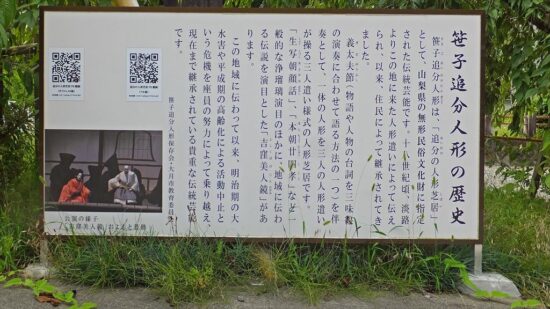 笹子追分人形の歴史
笹子追分人形は、「追分の人形芝居」
として、山梨県の無形民俗文化財に指定
された伝統芸能です。十八世紀頃、淡路
よりこの地に来た人形遣いによって伝え
られ、以来、住民によって継承されてき
ました。
義太夫節(物語や人物の台詞を三味線
の演奏に合わせて語る方法の一つ)を伴
奏として、一体の人形を三人の人形遣い
が操る三人遣い様式の人形芝居です。
「生写朝顔話」、「本朝廿四孝」など一
般的な浄瑠璃演目のほかに、地域に伝わ
る伝説を演目とした「吉窪美人鏡」があ
ります。
この地域に伝わって以来、明治期の大
水害や平成期の高齢化による活動中止と
いう危機を座員の努力によって乗り越え
現在まで継承されている貴重な伝統芸能
です。
笹子追分人形保存会・大月市教育委員会
公演の様子
「吉窪美人鏡」およると悪郎